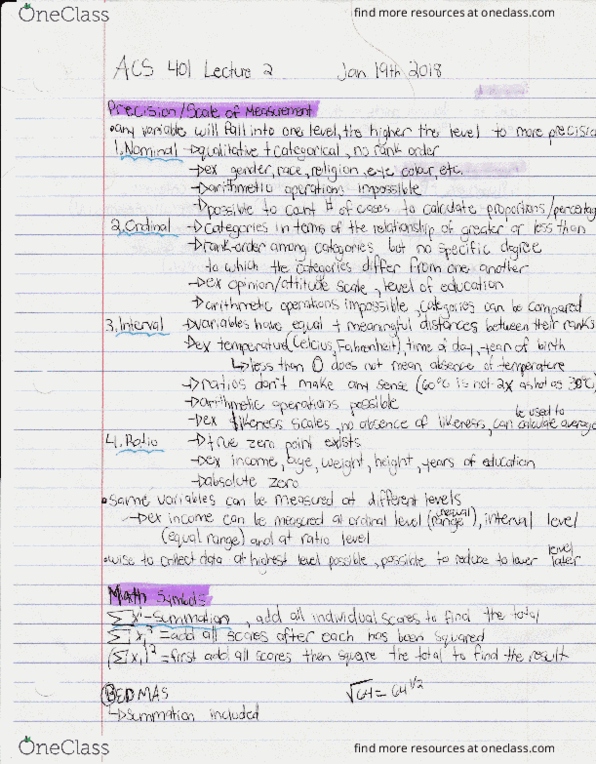 OneClass
find more resources at oneclass.com
ACS 401 Lecture 2 Jan 19th 2018
Precision/Scale of Measurement
•any variable will fall into one level, the higher the level to more precisio
1. Nominal →qualitative + categorical, no rank order
→ex gender, race, religion, eye colour, etc.
→arithmetic operations impossible
→possible to count # of cases to calculate proportions/percentag
2. Ordinal →categories in terms of the relationship of greater or less than
→rank-order among categories but no specific degree
to which the categories differ from one another
→ex opinion/attitude scale, level of education
→arithmetic operations impossible, categories can be compared
3. Interval →variables have equal + meaningful distances between their ranks
→ex temperature (Celcius, Fahrenheit), time of day, year of birth
↳less than 0 does not mean absence of temperature
→ratios don't make any sense (60°C is not 2x as hot as 30°C)
→arithmetic operations possible
→ex likeness scales, no absence of likeness, can be used to calculate average
4. Ratio →true zero point exists
→ex income, age, weight, height, years of education
→absolute zero
•same variables can be measured at different levels
→ex income can be measured at ordinal level (unequal range), interval level
(equal range) and at ratio level
•wise to collect data at highest level possible, possible to reduce to lower level later
Math Symbols
∑xⁱ-summation, add all individual scores to find the total
∑xᵢ² = add all scores after each has been squared
(∑xᵢ)² = first add all scores then square the total to find the result
BEDMAS √64 = 64^1/2
↳summation included
OneClass
find more resources at oneclass.com